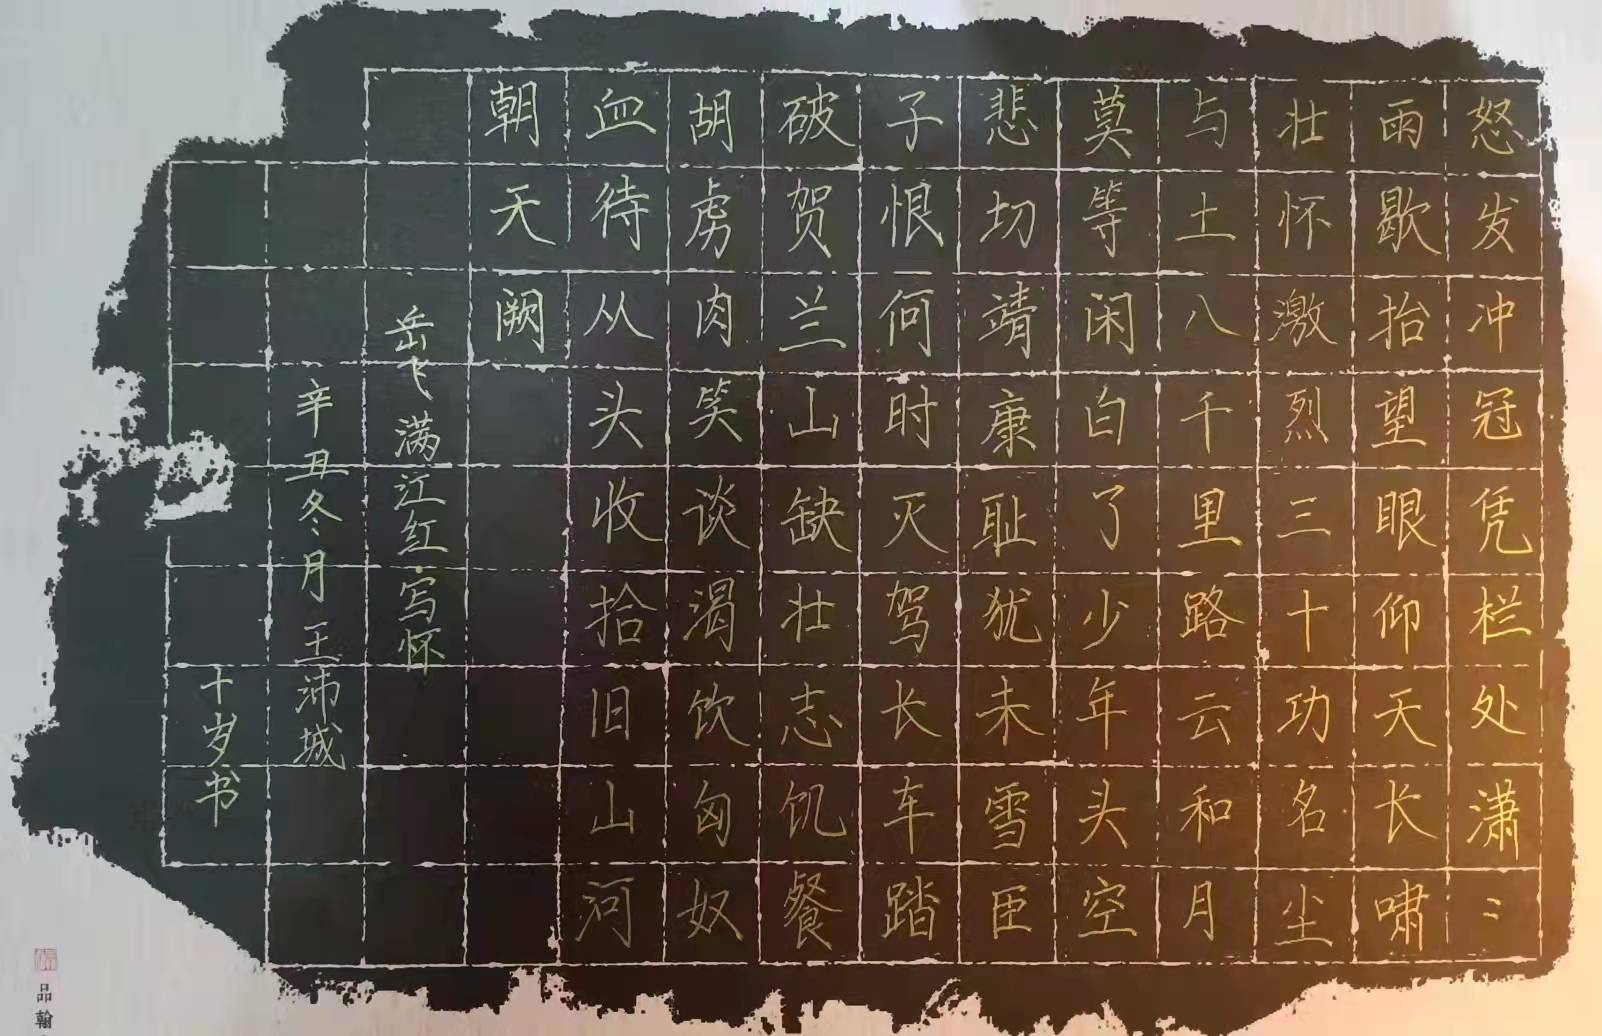 怒发冲冠凭栏处潇〻
雨歇抬望眼仰天长啸
壮怀激烈三十功名尘
与土八千里路云和月
莫等闲白了少年头空
悲切靖康耻犹未雪臣
子恨何时灭驾长车踏
破贺兰山缺壮志饥餐
胡虏肉笑谈渴饮匈奴
血待从头收拾旧山河
朝天阙
岳飞满江红·写怀
辛丑冬月王沛城
十岁书
品翰